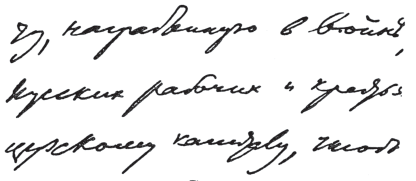 чу, награбленную в войнѣ,
русских рабочих и кресть
цузскому капиталу, чтобъ